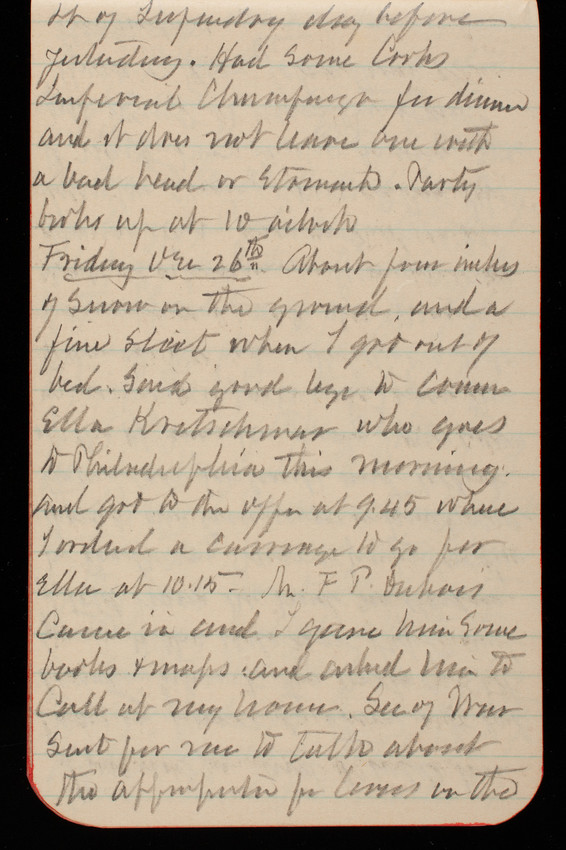 of day before
yesterday. Had some Cooks
Imperial Champaign for dinner
and it does not leave one with
a bad head or Stomach. Party
broke up at 10 oclock
Friday Dec 26th. About four inches
of Snow on the ground, and a
fine Sleet when I got out of
bed. Said good bye to Cousin
Ella Kretschmar who goes
to Philadelphia this morning.
and got to the office at 9.45 where
I ordered a carriage to go for
Ella at 10.15. Mr. F P. Dubois
Came in and I gave him Some
books & maps. and asked him to
Call at my house. Sec of War
Sent for me to talk about
the for levees on the